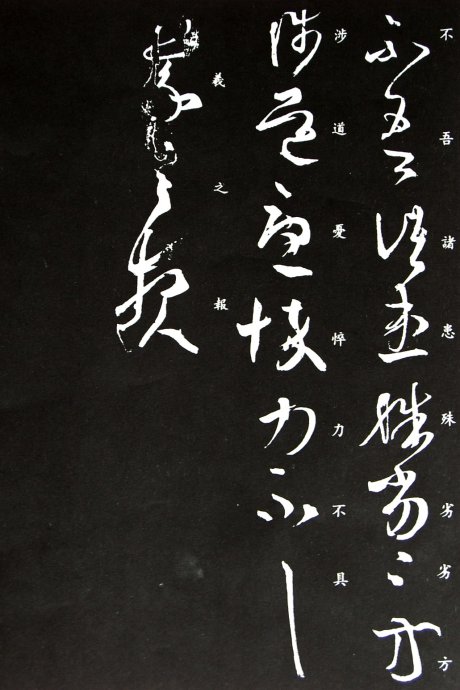 不吾諸患殊劣劣方
涉道憂悴力不具
羲之報